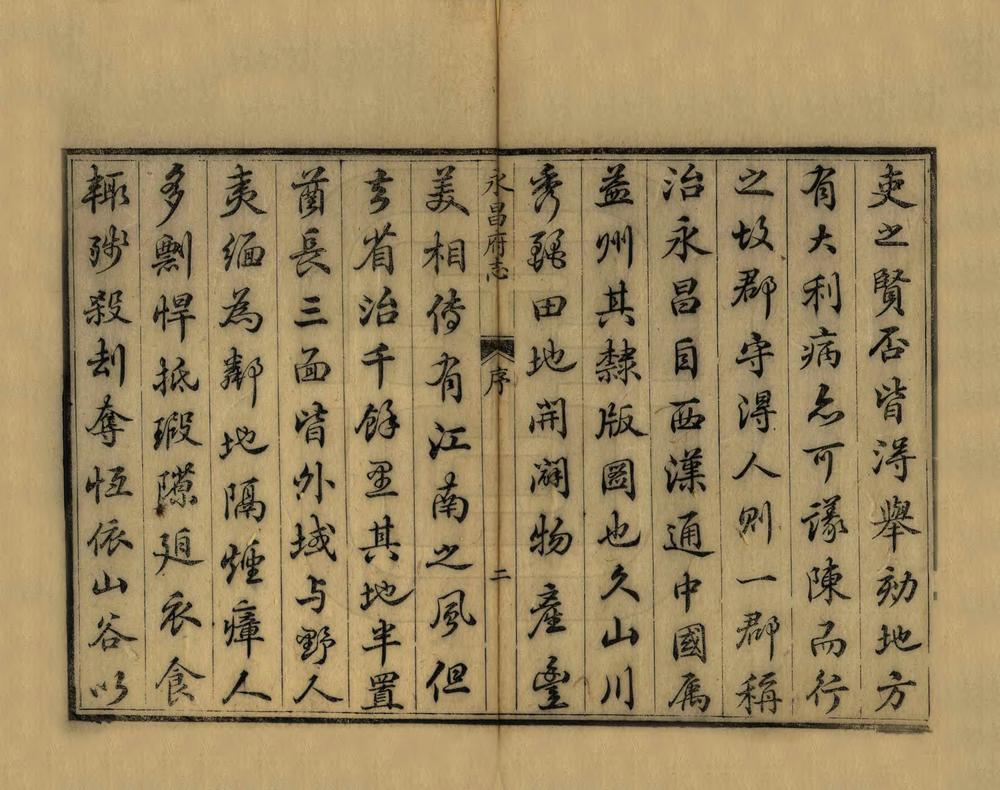 吏之賢否皆得舉劾地方
有大利病亦可議陳而行
之故郡守得人則一郡稱
治永昌自西漢通中國屬
益州其隸版圖也久山川
秀麗田地開闢物產豐
永昌府志 序 二
美相傳有江南之風但
去省治千餘里其地半置
酋長三面皆外域与野人
夷緬為鄰地隔煙瘴人
多剽悍抵瑕隙迫衣食
輒殘殺刦奪恒依山谷以